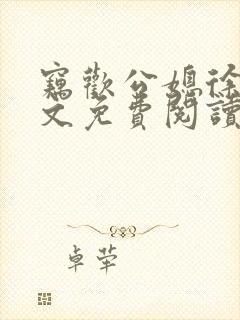 竊歡公媳徐
文免費閱讀
卓犖